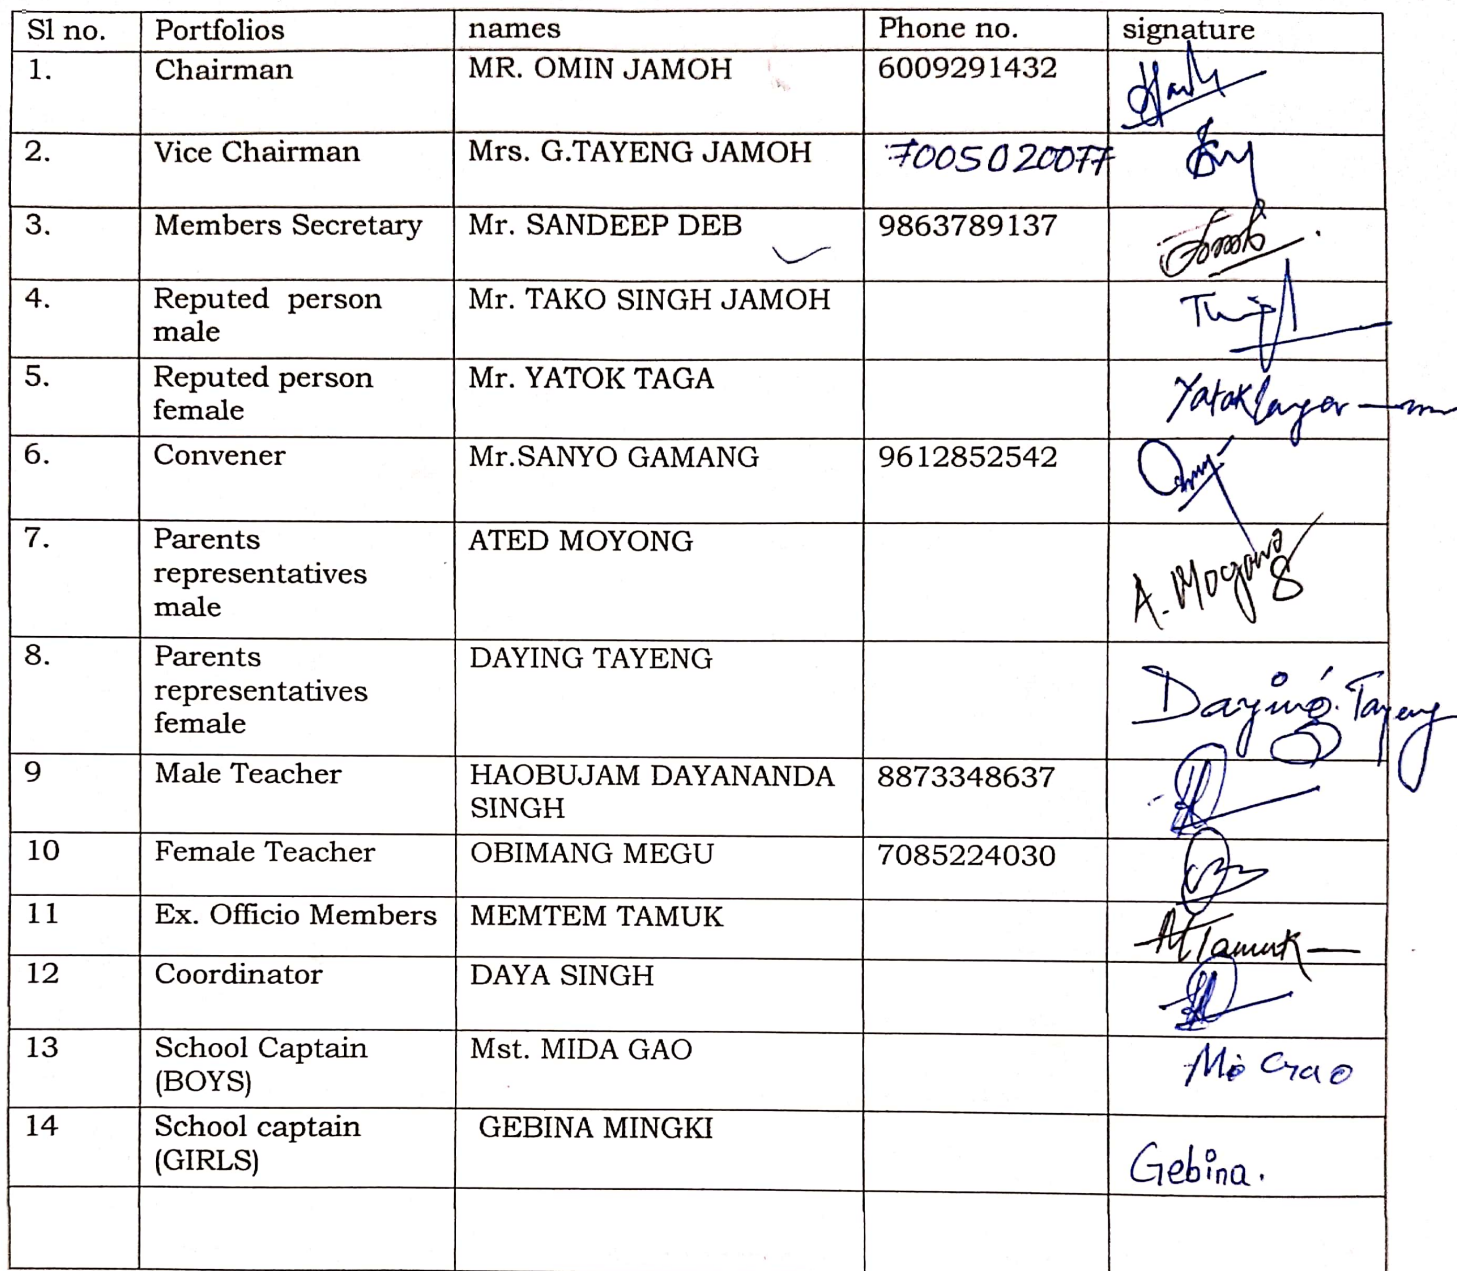 Sl no. Portfolios names Phone no. signature
1. Chairman MR. OMIN JAMOH 6009291432
2. Vice Chairman Mrs. G.TAYENG JAMOH 7005020077
3. Members Secretary Mr. SANDEEP DEB 9863789137
4. Reputed person Mr. TAKO SINGH JAMOH
male
5. Reputed person Mr. YATOK TAGA
female
6. Convener Mr.SANYO GAMANG 9612852542
7. Parents ATED MOYONG
representatives
male A. Moyong
8. Parents DAYING TAYENG
representatives Daying. Tayeng
female
9 Male Teacher HAOBUJAM DAYANANDA 8873348637
SINGH
10 Female Teacher OBIMANG MEGU 7085224030
11 Ex. Officio Members MEMTEM TAMUK MTamuk
12 Coordinator DAYA SINGH
13 School Captain Mst. MIDA GAO Mi Gao
(BOYS)
14 School captain GEBINA MINGKI
(GIRLS) Gebina.